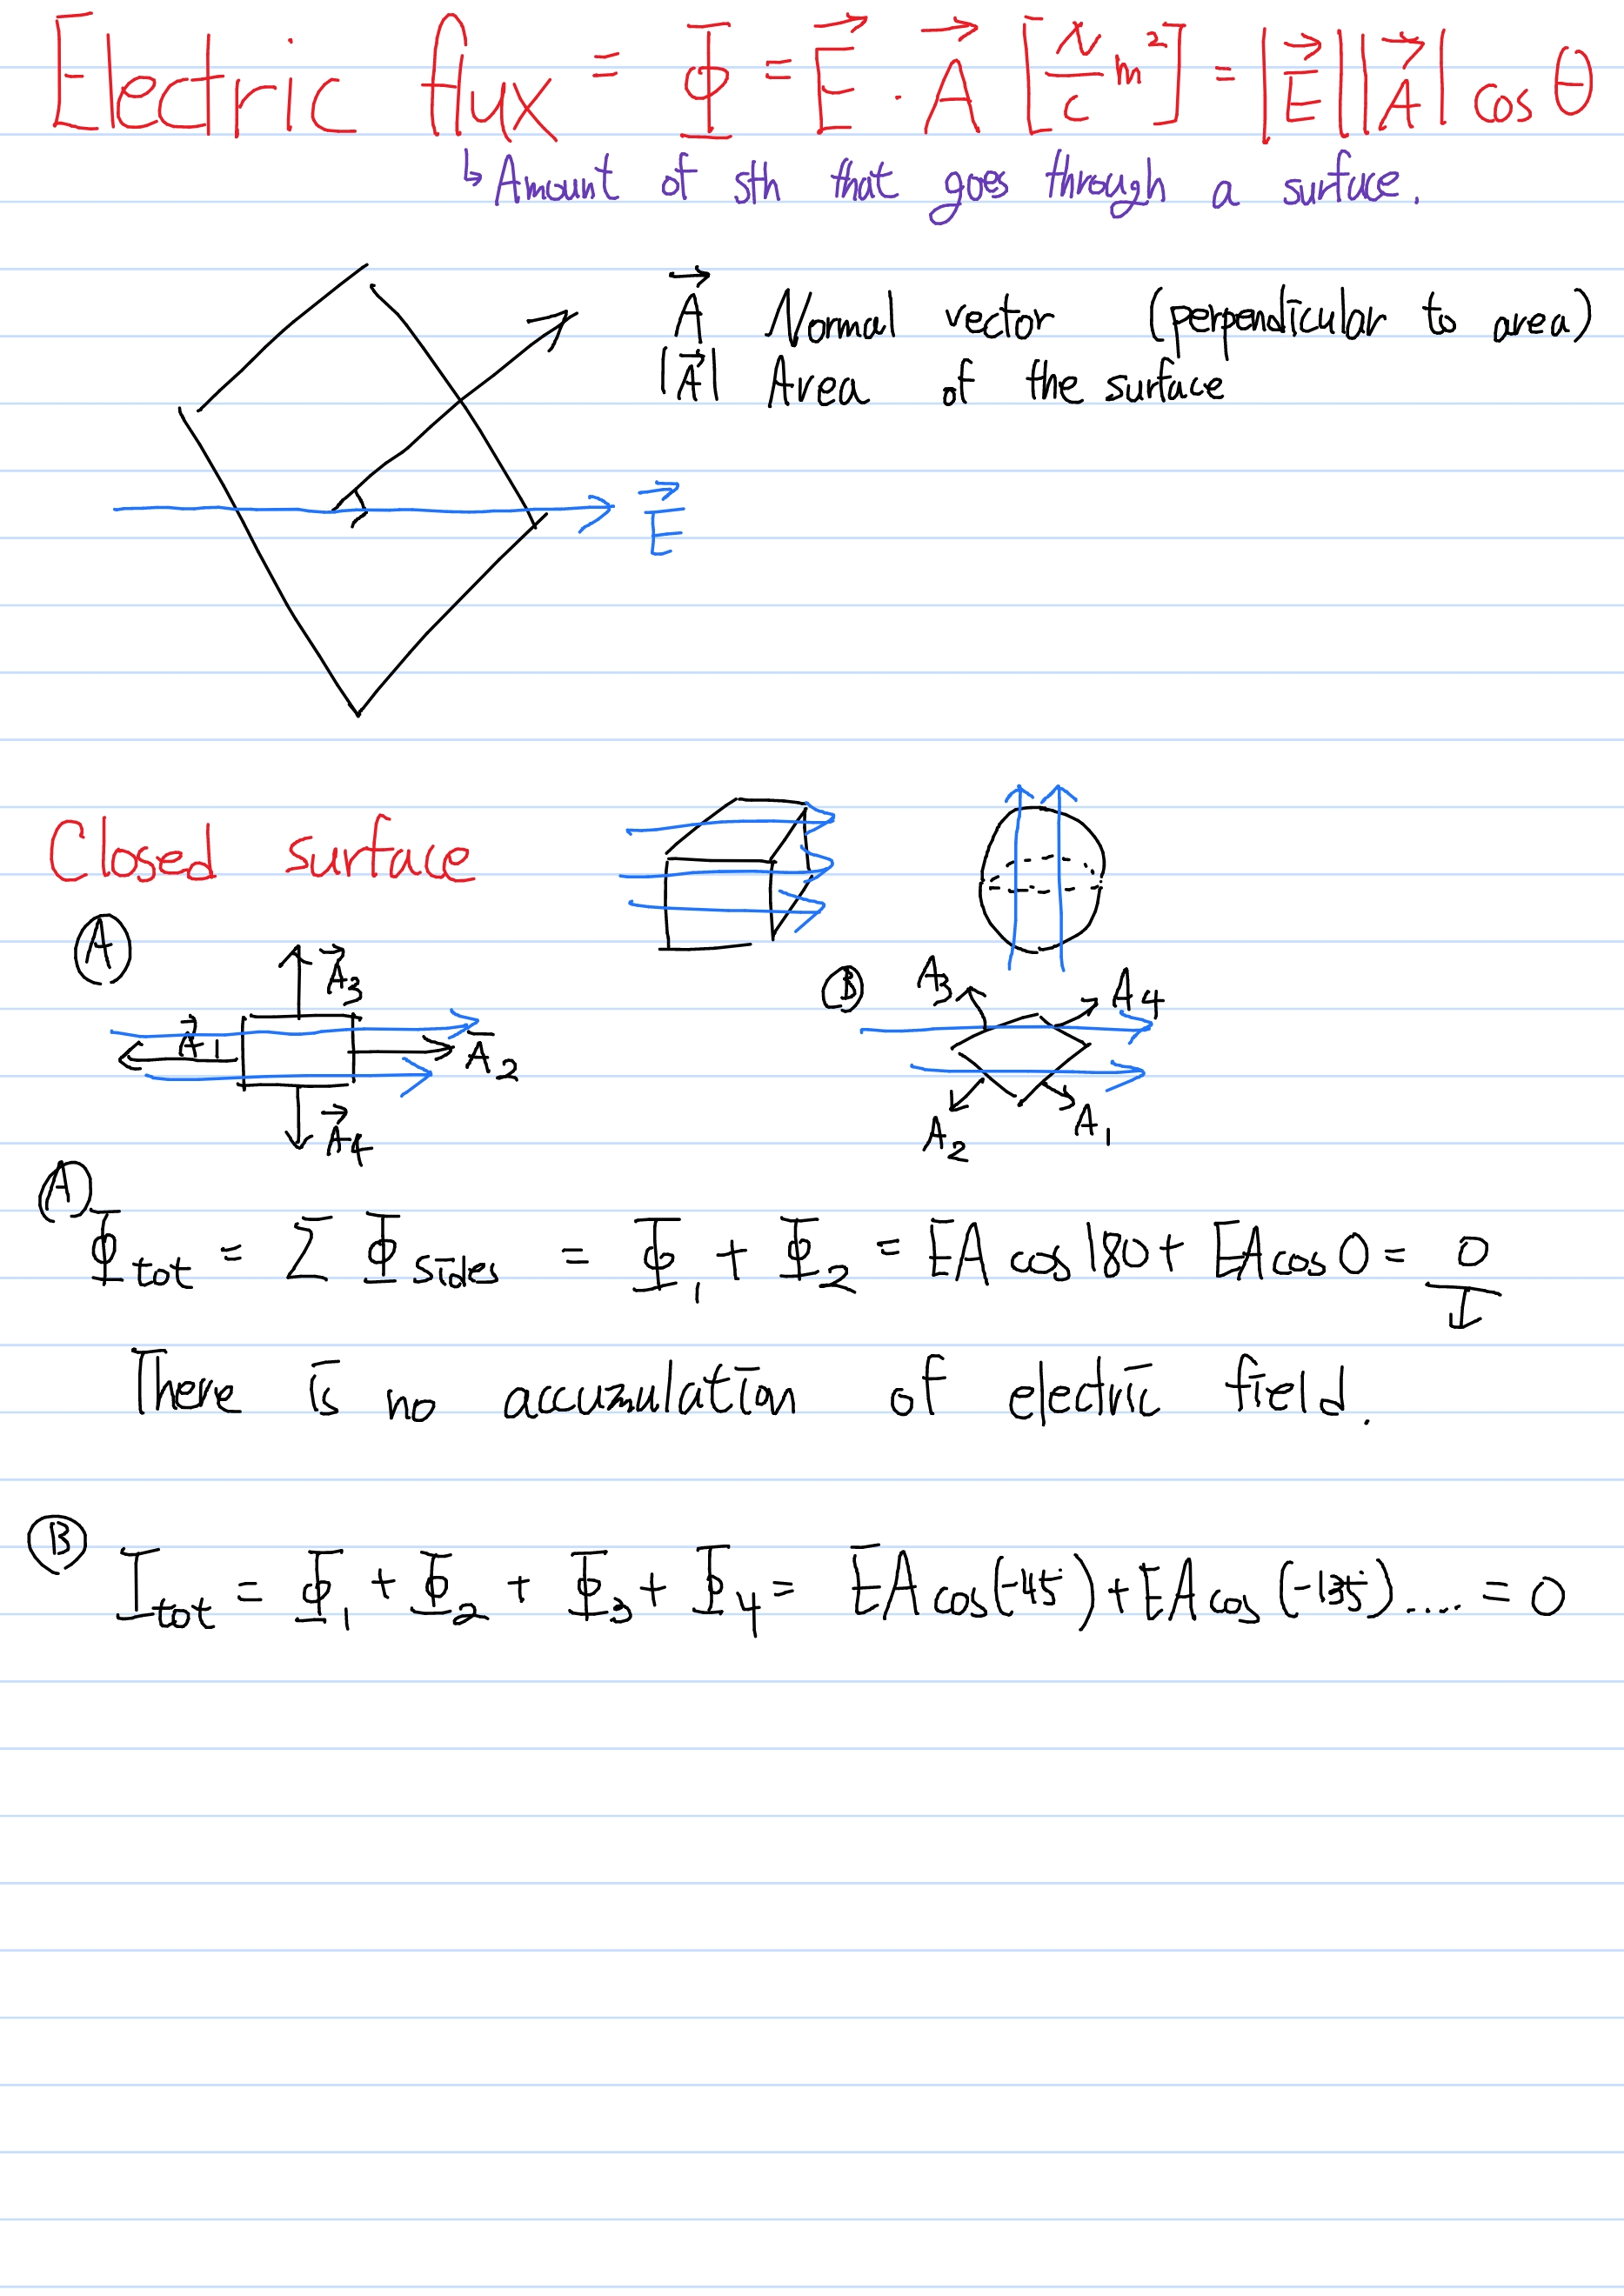 Electric flux = Φ = E⃗ · A⃗ [N/C m²] = |E⃗||A⃗| cos θ
↳ Amount of sth that goes through a surface.
A⃗ Normal vector (perpendicular to area)
|A⃗| Area of the surface
E⃗
Closed surface
Ⓐ
A⃗3
A⃗1
A̅2
A⃗4
Ⓑ
A3
A4
A2
A1
Ⓐ
Φtot = Σ Φsides = Φ1 + Φ2 = EA cos 180 + EA cos 0 = 0
There is no accumulation of electric field.
Ⓑ Itot = Φ1 + Φ2 + Φ3 + Φ4 = EA cos(-45) + EA cos(-135) .... = 0